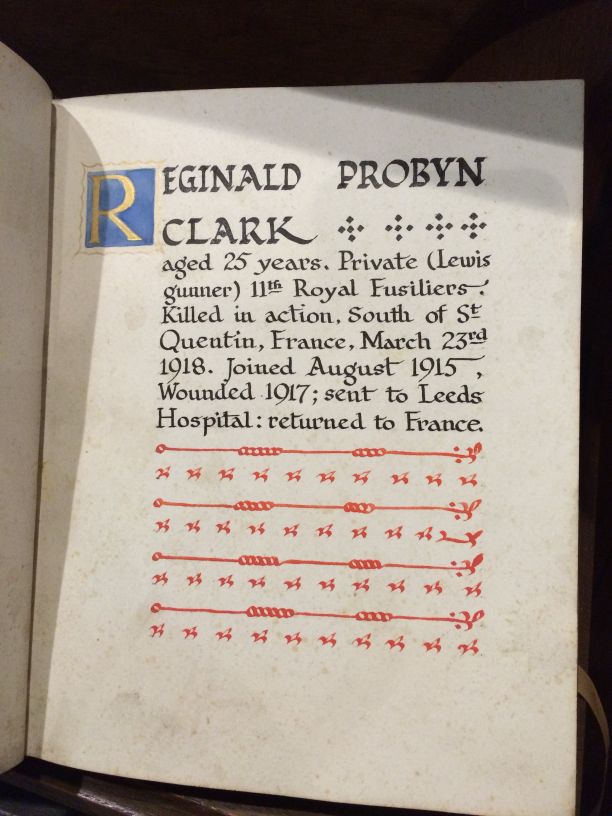 REGINALD PROBYN
CLARK
aged 25 years. Private (Lewis
gunner) 11th Royal Fusiliers.
Killed in action, South of St
Quentin, France, March 23rd
1918. Joined August 1915,
Wounded 1917; sent to Leeds
Hospital: returned to France.